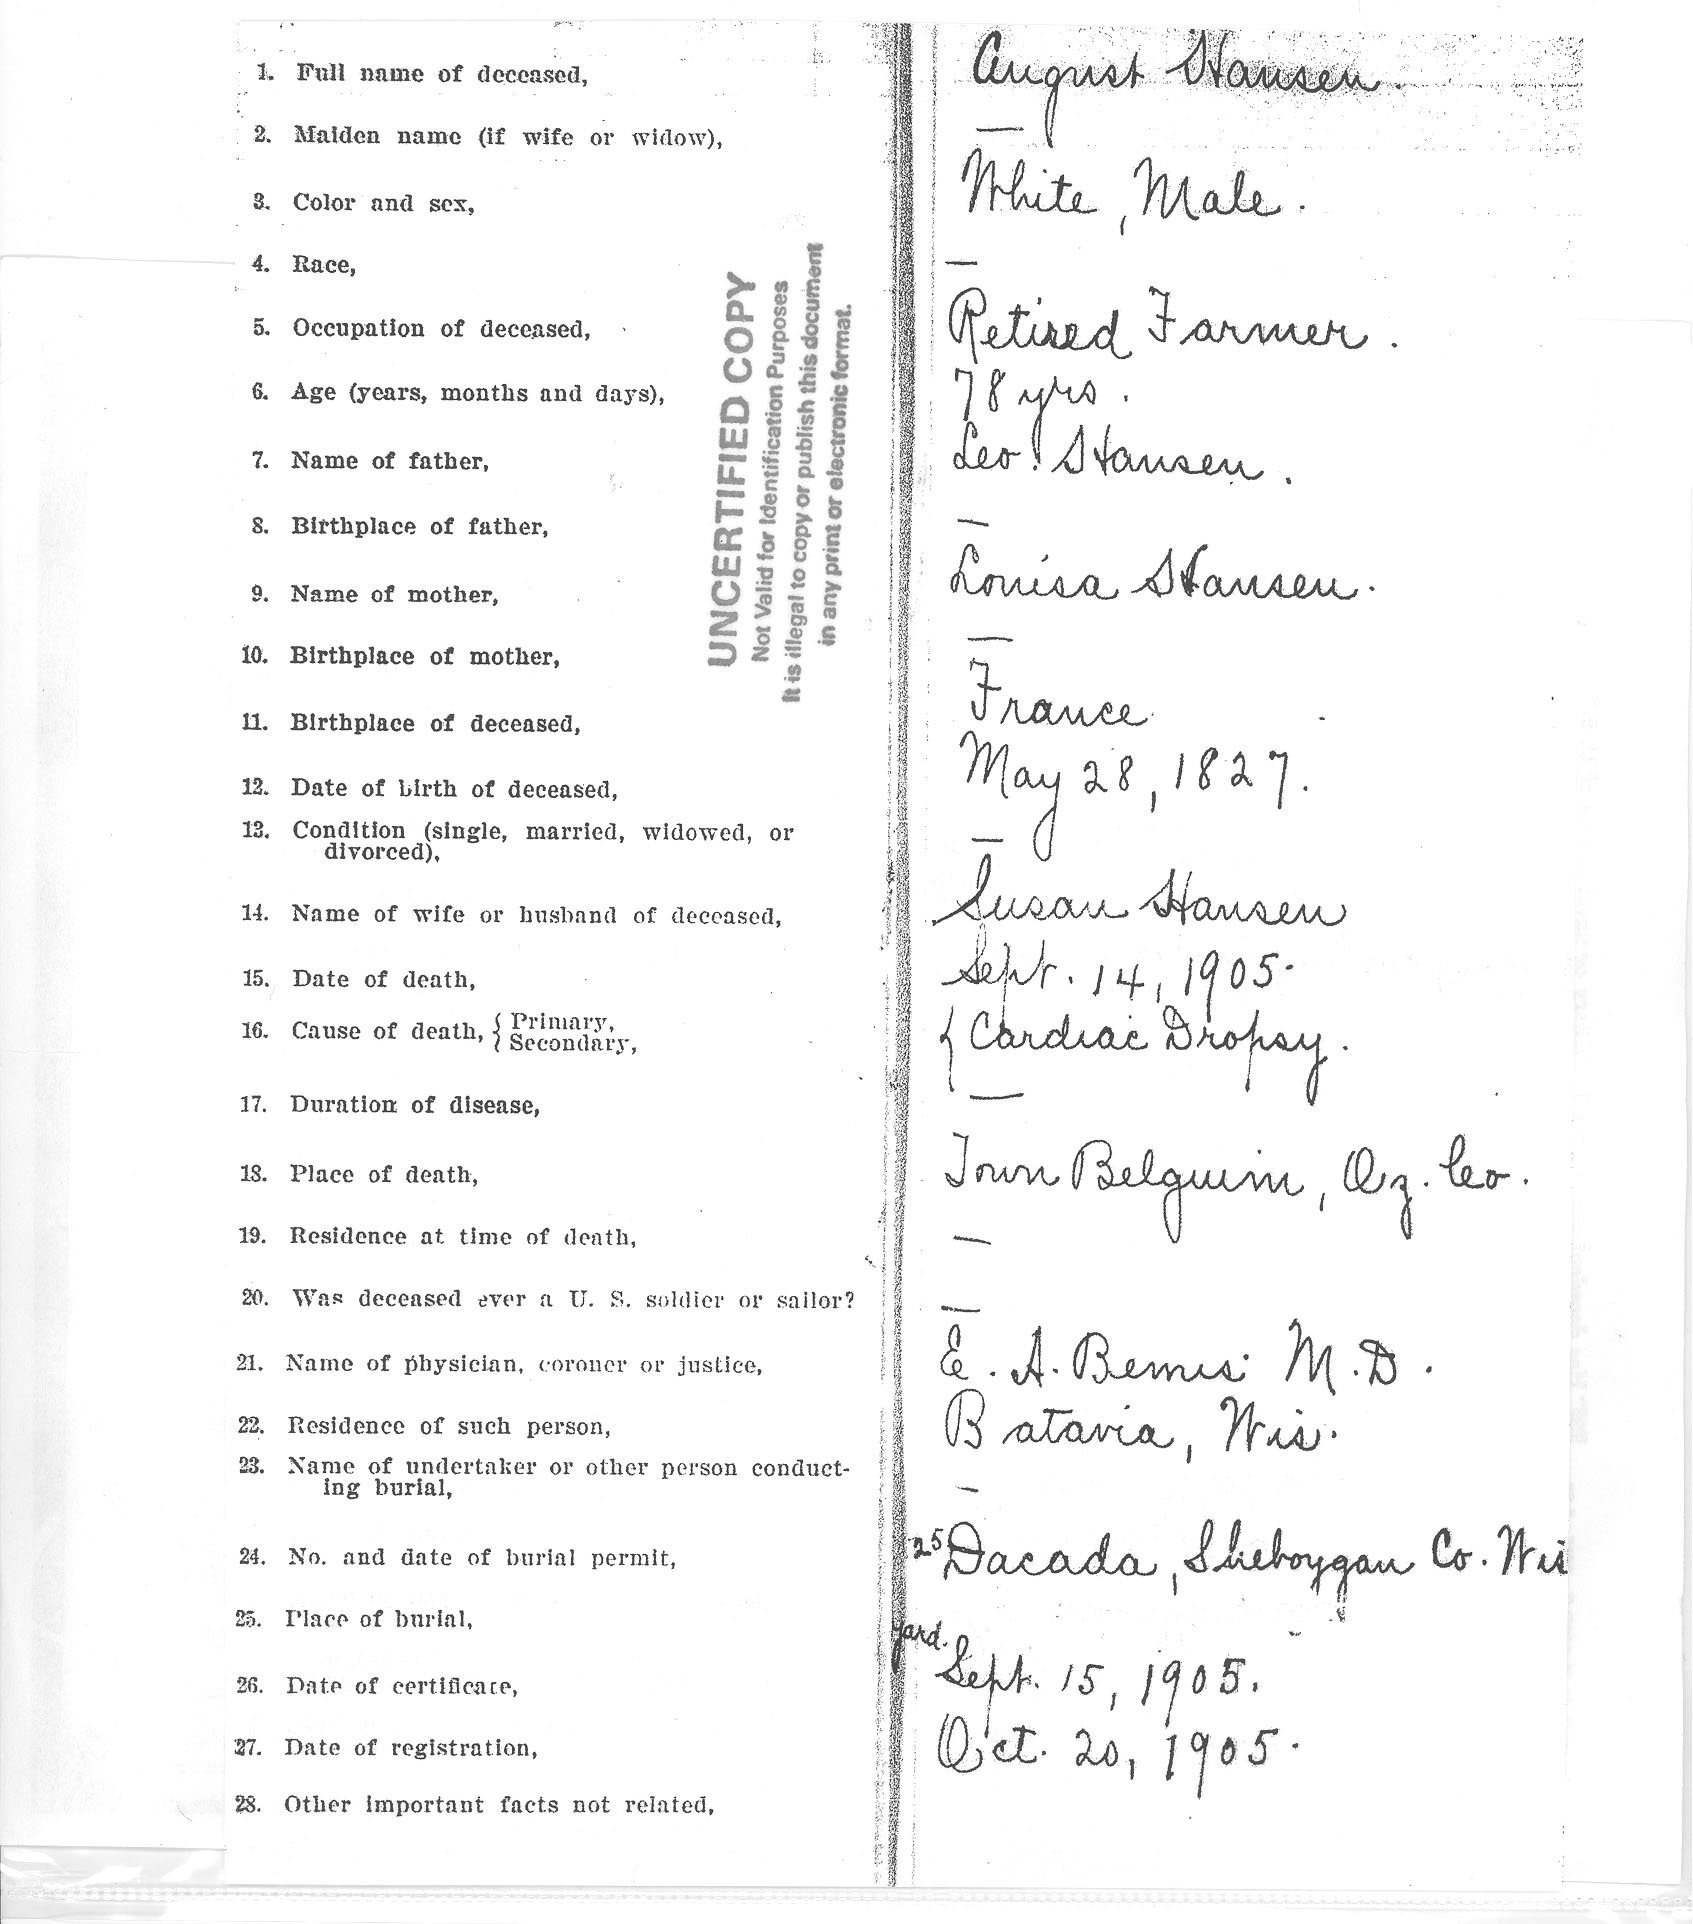 1. Full name of deceased, August Hansen.
2. Maiden name (if wife or widow), —
3. Color and sex, White, Male.
4. Race, —
5. Occupation of deceased, Retired Farmer.
6. Age (years, months and days), 78 yrs.
7. Name of father, Leo. Hansen.
8. Birthplace of father, —
9. Name of mother, Louisa Hansen.
10. Birthplace of mother, —
11. Birthplace of deceased, France
12. Date of birth of deceased, May 28, 1827.
13. Condition (single, married, widowed, or
divorced), —
14. Name of wife or husband of deceased, Susan Hansen
15. Date of death, Sept. 14, 1905.
16. Cause of death, { Primary, { Cardiac Dropsy.
Secondary,
17. Duration of disease, —
18. Place of death, Town Belguim, Oz. Co.
19. Residence at time of death, —
20. Was deceased ever a U. S. soldier or sailor? —
21. Name of physician, coroner or justice, E. A. Bemis M.D.
22. Residence of such person, Batavia, Wis.
23. Name of undertaker or other person conduct-
ing burial, —
24. No. and date of burial permit, 25 Dacada, Sheboygan Co. Wis
25. Place of burial, yard.
26. Date of certificate, Sept. 15, 1905.
27. Date of registration, Oct. 20, 1905.
28. Other important facts not related,
UNCERTIFIED COPY
Not Valid for Identification Purposes
It is illegal to copy or publish this document
in any print or electronic format.